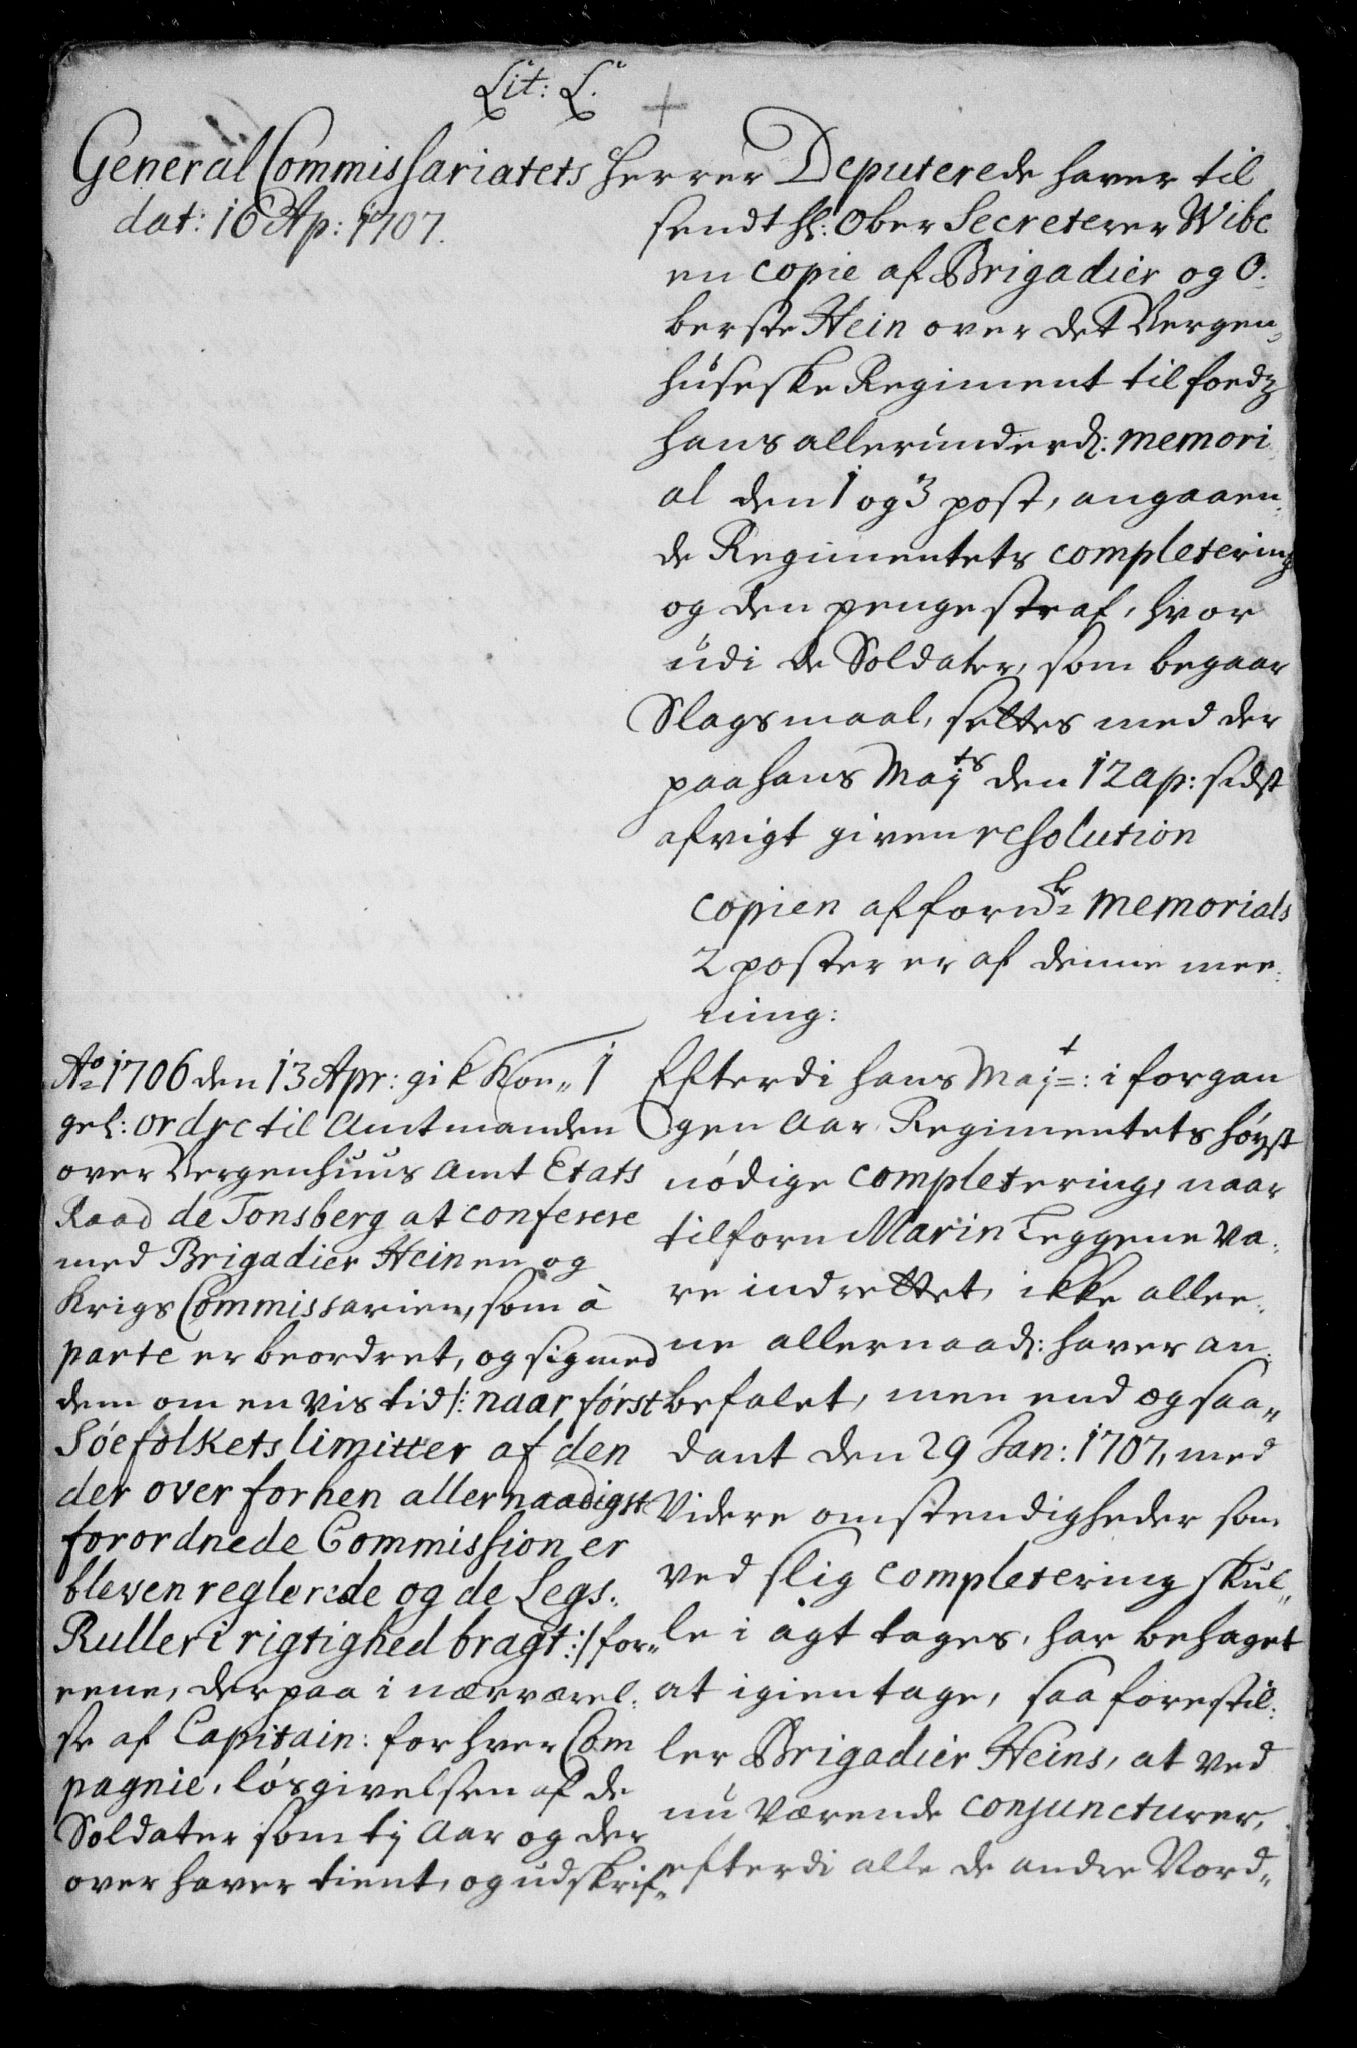 Lit: L.
General Commissariatets Herrer Deputerede haver til
dat: 16 Ap: 1707.
sendt hl: Ober Secreterer Wibe
en copie af Brigadier og O-
berste Hein over det Bergen-
huseske Regiment til foedz
hans allerunderd: memori
al den 1 og 3 post, angaaen-
de Regimentets completering
og den pengestraf, hvor
udi de Soldater, som begaar
Slagsmaal, settes med der
paa hans Majts den 12 ap: sidst
afvigt given resolution
copien af fornde memorials
2 poster er af denne mee-
ning:
Ao 1706 den 13 Apr: gik Kon-
gel: ordre til Amtmanden
over Bergenhuus Amt Etats
Raad de Tonsberg at conferere
med Brigadier Heinen og
Krigs Commissarien, som à
parte er beordret, og sig med
dem om en vis tid /: naar først
Søefolkets limitter af den
der over forhen allernaadigst
forordnede Commission er
bleven reglerede og de Legs-
Ruller i rigtighed bragt :/ for-
eene, der paa i nærværel-
se af Capitain: for hver Com
pagnie, løsgivelsen af de
Soldater som tij Aar og der
over haver tient, og udskrif-
1 Efterdi hans Majt: i forgan
gen Aar Regimentets høyst
nödige completering, naar
tilforn Marin Leggene va-
re indrettet, ikke allee-
ne allernaad: haver an-
befalet, men end og saa-
dant den 29 Jan: 1707, med
Videre omstendigheder som
ved slig completering skul-
le i agt tages, har behaget
at igientage, saa forestil-
ler Brigadier Heins, at ved
nu værende conjuncturer,
efterdi alle de andre Nord-